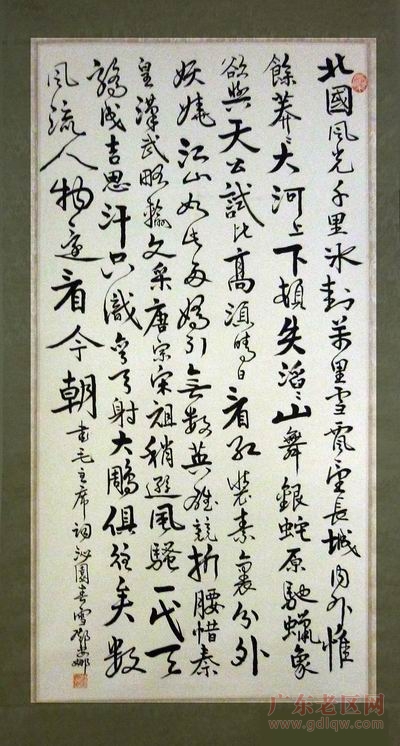 北國風光千里冰封萬里雪飄望長城内外惟
餘莽〻大河上下頓失滔〻山舞銀蛇原馳蠟象
欲與天公試比高須晴日看紅裝素裹分外
妖嬈江山如此多嬌引無數英雄競折腰惜秦
皇漢武略輸文采唐宗宋祖稍遜風騷一代天
驕成吉思汗只識彎弓射大鵰俱往矣數
風流人物還看今朝
書毛主席詞沁園春雪
广东老区网
www.gdlqw.com